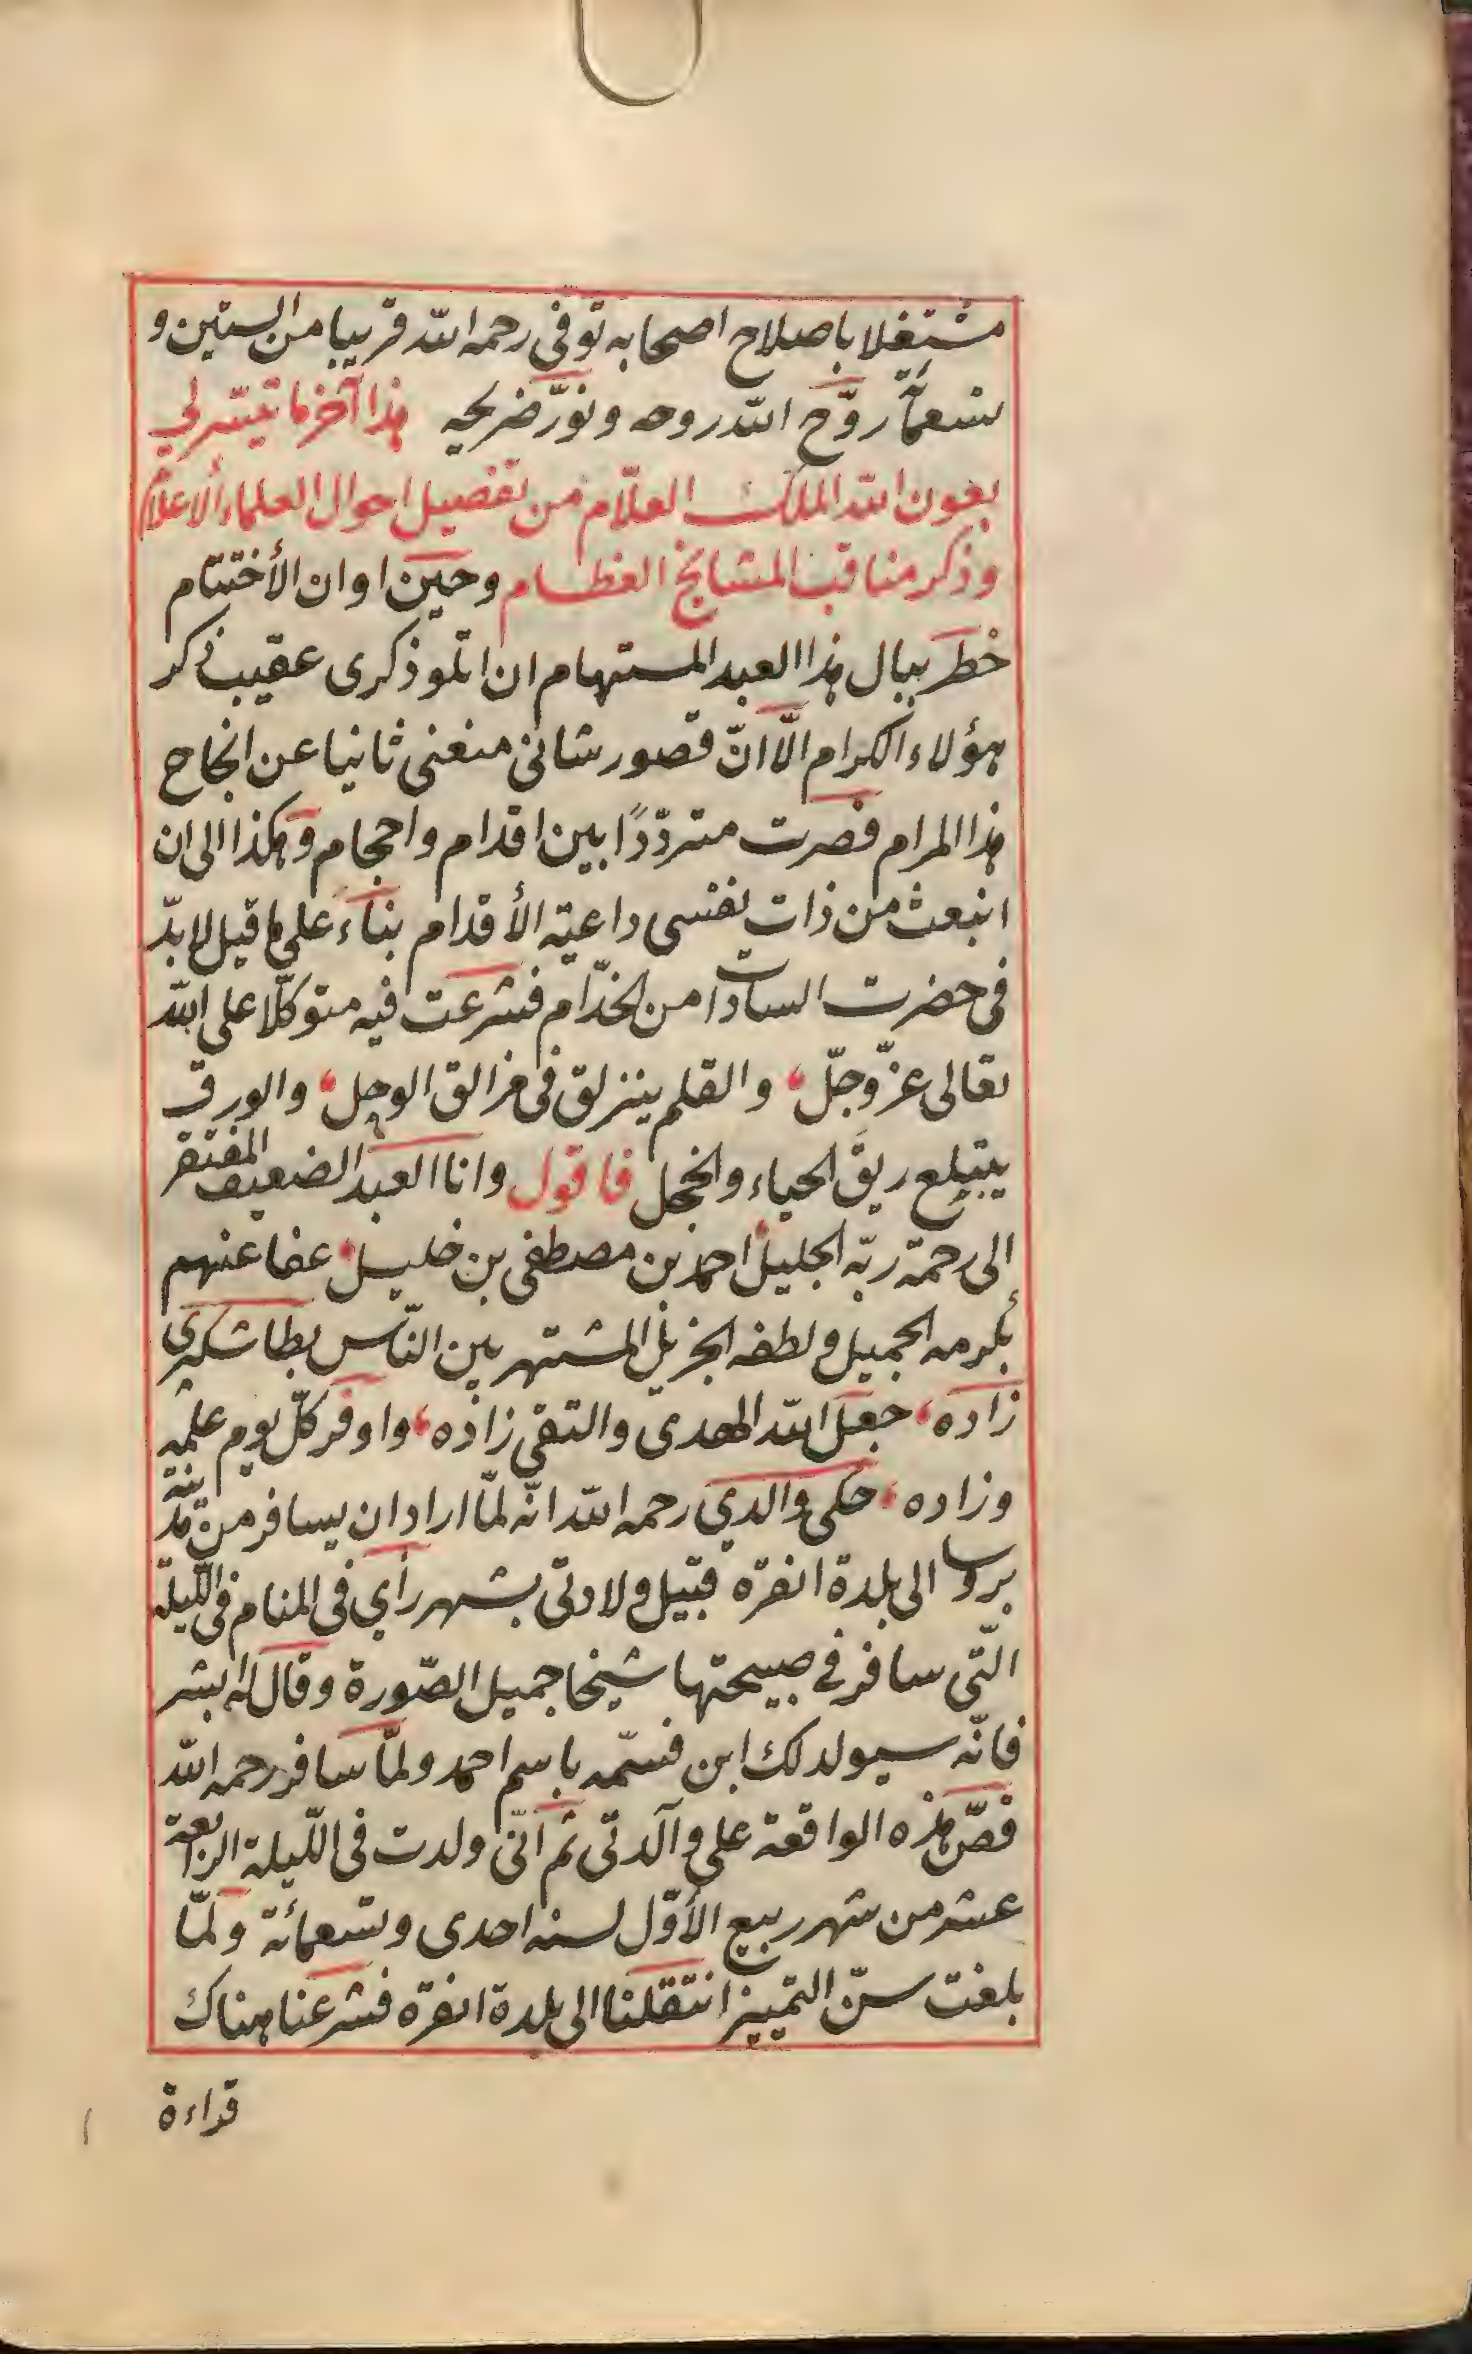 مشتغلا باصلاح اصحابه توفى رحمه الله قريبا من الستين و
تسعمأة روّح الله روحه ونوّر ضريحه هذا آخر ما تيسّر لي
بعون الله الملك العلّام من تفصيل احوال العلماء الاعلام
وذكر مناقب المشائخ العظام وحين اوان الأختتام
خطر ببال هذا العبد المستهام ان اتلو ذكرى عقيب ذكر
هؤلاء الكرام الّا انّ قصور شانى منعنى ثانيا عن انجاح
هذا المرام فصرت متردّدًا بين اقدام واحجام وهكذا الى ان
انبعث من ذات نفسى داعية الأقدام بناء على ما قيل لا بدّ
فى حضرت السادات من الخدّام فشرعت فيه متوكّلا على الله
تعالى عزّ وجلّ، والقلم ينزلق فى مزالق الوجل، والورق
يبتلع ريق الحياء والخجل فاقول وانا العبد الضعيف المفتقر
الى رحمة ربّه الجليل احمد بن مصطفى بن خليل، عفا عنهم
بكرمه الجميل ولطفه الجزيل المشتهر بين النّاس بطاشكبرى
زاده، جعل الله الهدى والتقى زاده، واوفر كلّ يوم علمه
وزاده، حكى والدي رحمه الله انّه لمّا اراد ان يسافر من مدينة
بروسا الى بلدة انقرة قبيل ولادتى بشهر رأي فى المنام فى اللّيلة
الّتى سافر في صبيحتها شيخا جميل الصّورة وقال له ابشر
فانّه سيولد لك ابن فسمّه باسم احمد ولمّا سافر رحمه الله
قصّ هذه الواقعة على والدتى ثم انّى ولدت فى اللّيلة الرابعة
عشر من شهر ربيع الأوّل لسنه احدى وتسعمائة ولمّا
بلغت سنّ التمييز انتقلنا الى بلدة انقرة فشرعنا هناك
قراءة